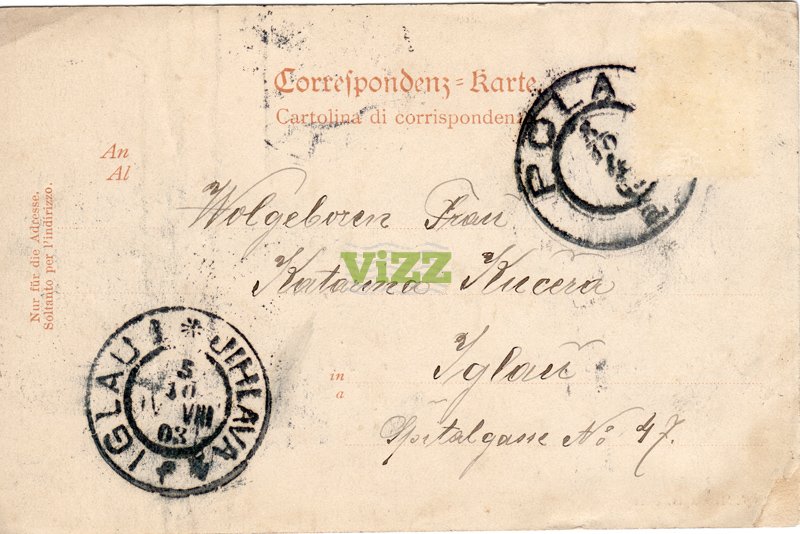 Correspondenz-Karte
Cartolina di corrispondenz
An
Al
Nur für die Adresse.
Soltanto per l'indirizzo.
POLA
Wolgeboren Frau
ViZZ
Katarina Kučera
in
a
Iglau
Spitalgasse No 47.
IGLAU 1 * JIHLAVA 1
5
10
VIII
03